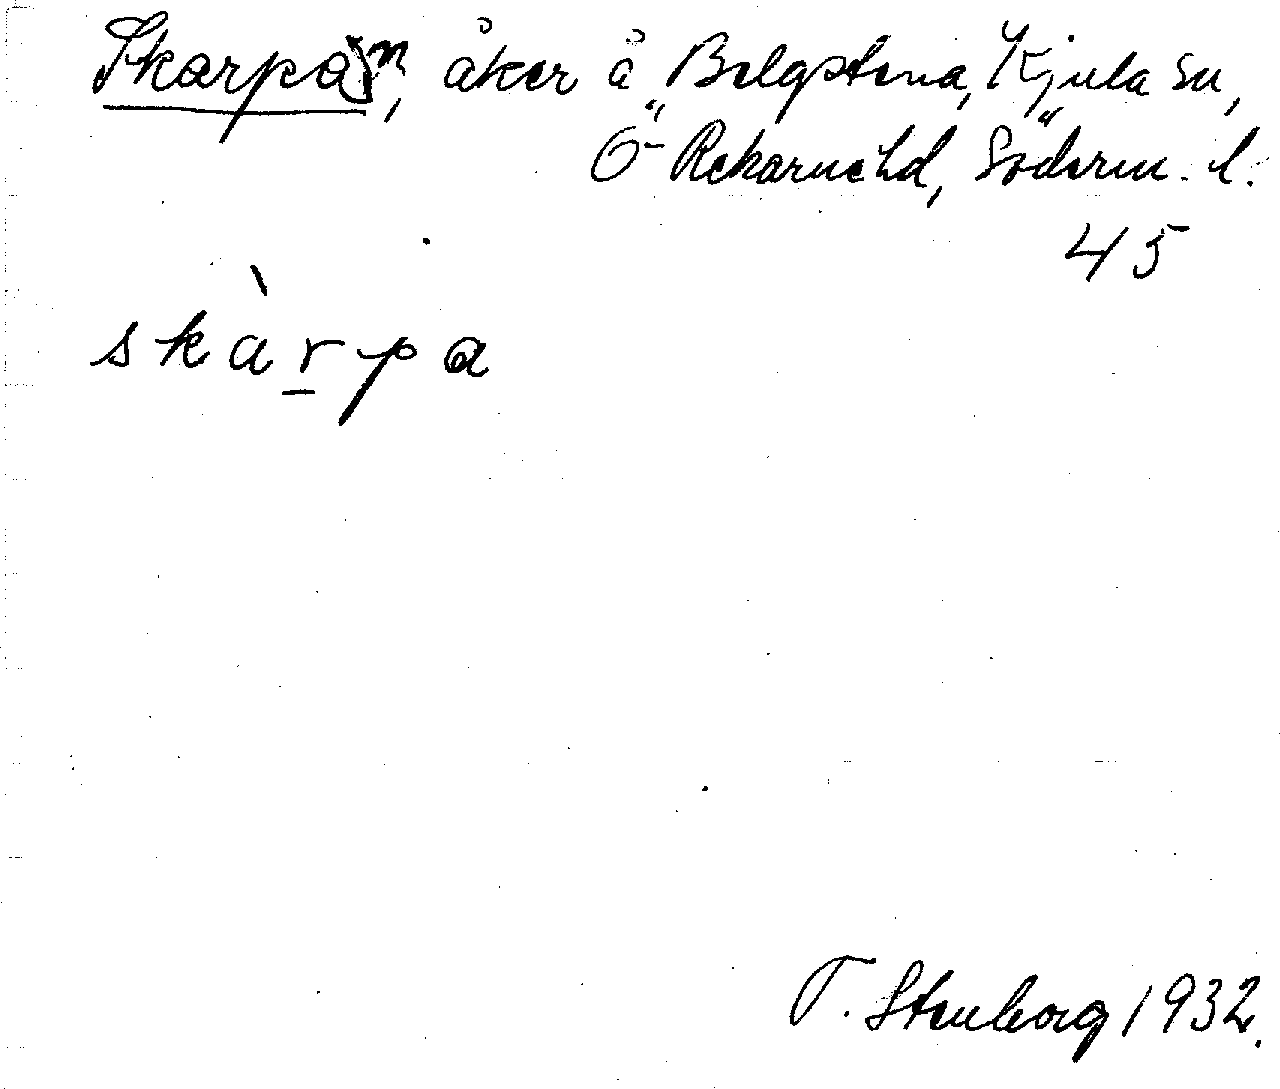 Skarpan, åker å Belgstena, Kjula sn,
Ö-Rekarne hd, Söderm. l.
45
skàrpa
T. Stenborg 1932.